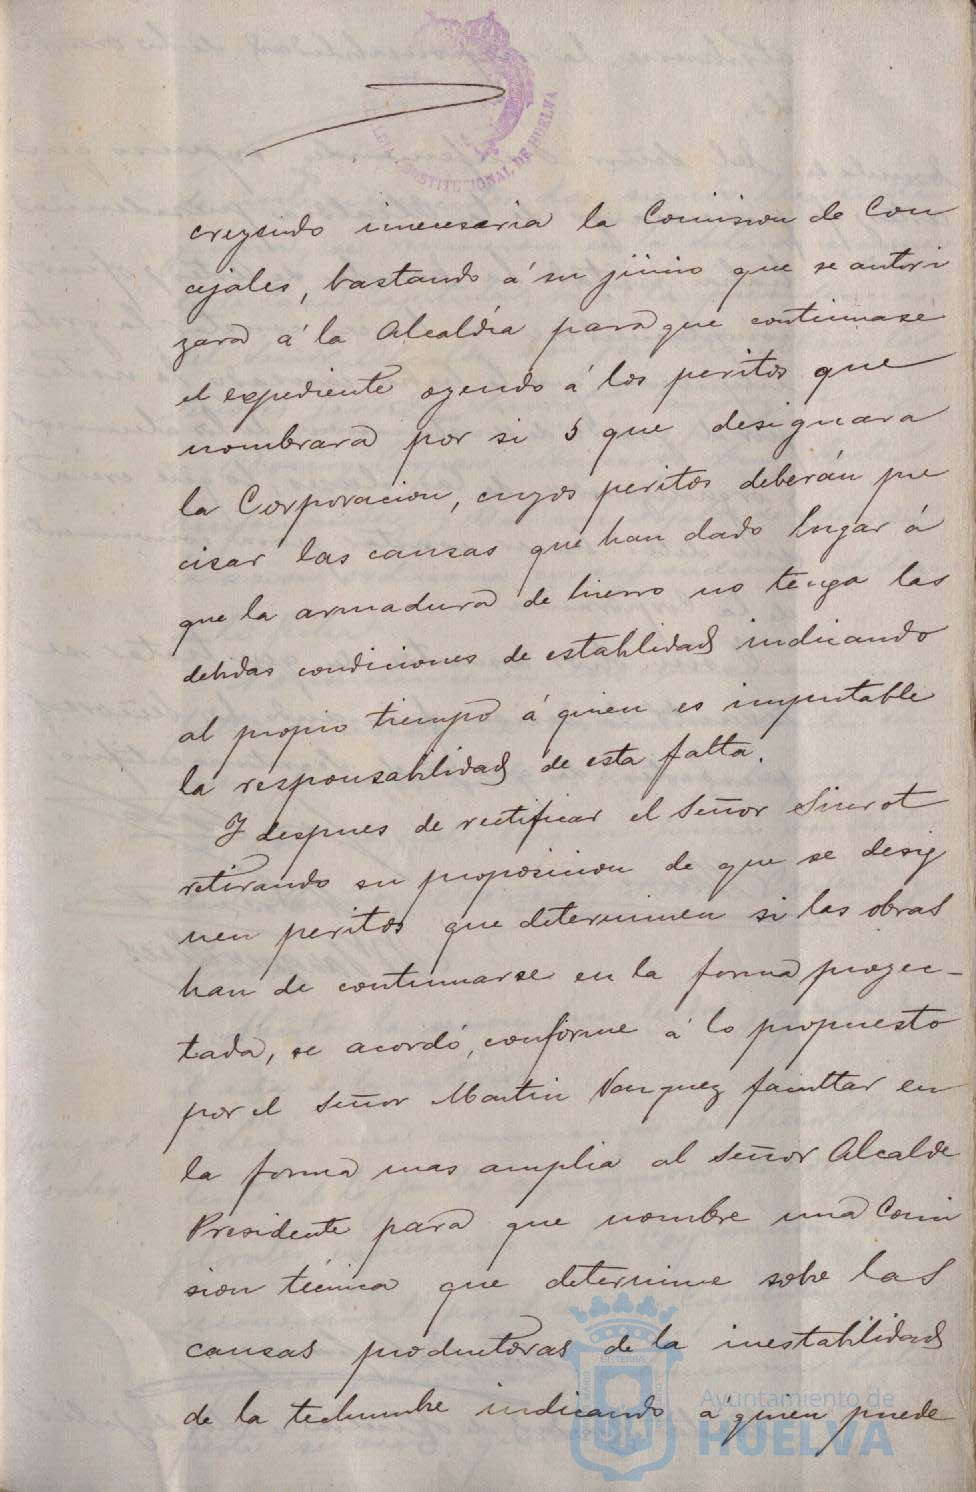 CONSTITUCIONAL DE HUELVA
creyendo innecesaria la Comision de Con
cejales, bastando á su juicio que se autori
zara á la Alcaldía para que continuase
el expediente oyendo á los peritos que
nombrara por si ó que designara
la Corporacion, cuyos peritos deberán pre
cisar las causas que han dado lugar á
que la armadura de hierro no tenga las
debidas condiciones de estabilidad indicando
al propio tiempo á quien es imputable
la responsabilidad de esta falta.
Y despues de rectificar el Señor Siurot
retirando su proposicion de que se desig
nen peritos que determinen si las obras
han de continuarse en la forma proyec-
tada, se acordó, conforme á lo propuesto
por el Señor Martin Vazquez facultar en
la forma mas amplia al Señor Alcalde
Presidente para que nombre una Comi
sion técnica que determine sobre las
causas productoras de la inestabilidad
de la techumbre indicando á quien puede
Ayuntamiento de
HUELVA